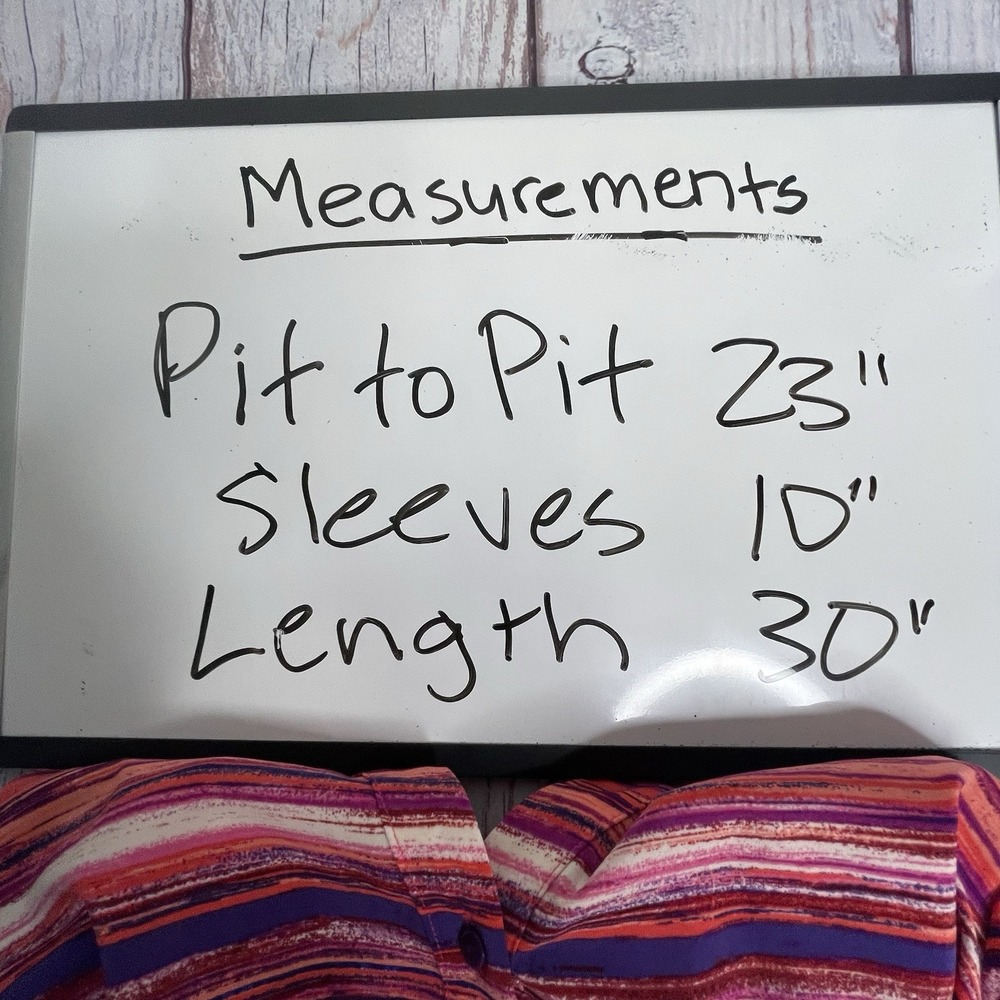 Measurements
Pit to Pit 23"
Sleeves 10"
Length 30"